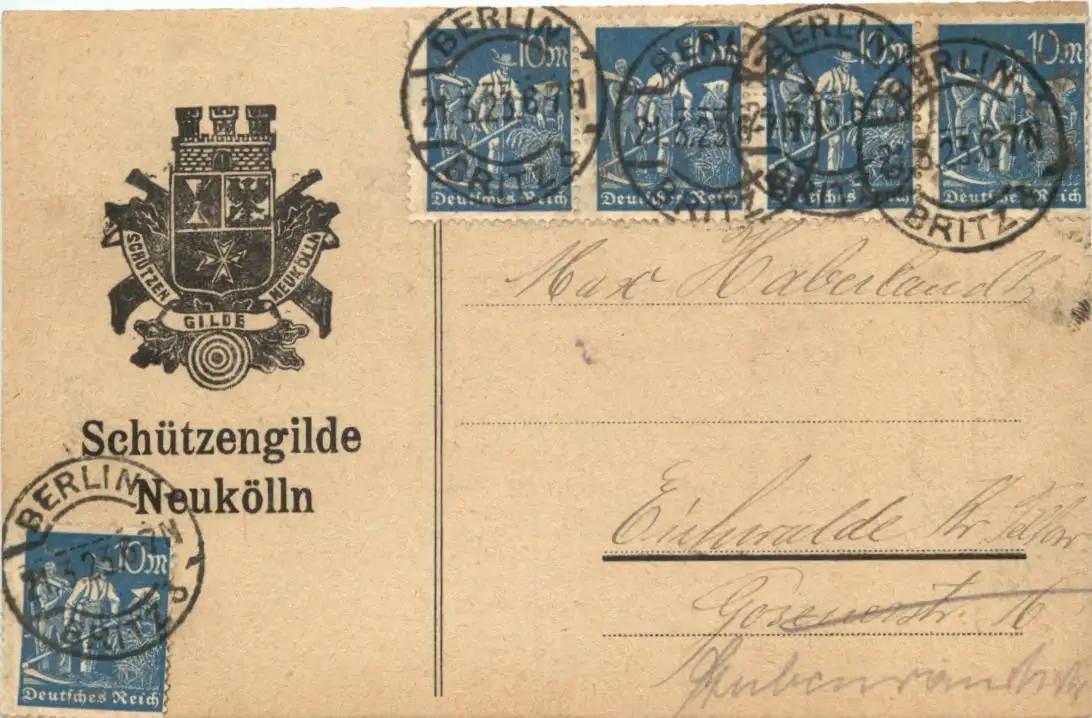 10M 10M 10M 10M
BERLIN BERLIN BERLIN BERLIN
21.3.23.6-7N 21.3.23.6-7N 6-7N
BRITZ BRITZ BRITZ BRITZ
Deutsches Reich Deutsches Reich Deutsches Reich Deutsches Reich
SCHÜTZEN
NEUKÖLLN
GILDE
Schützengilde
Neukölln
Max Haberlandt
Eichwalde Kr. Teltow
16
BERLIN
10M
21.3.23
BRITZ
Deutsches Reich